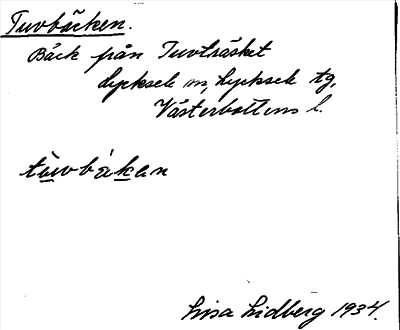 Tuvbäcken.
Bäck från Tuvträsket
Lycksele sn, Lycksele tg,
Västerbottens l.
tùvbä́kan
Lisa Lidberg 1934.